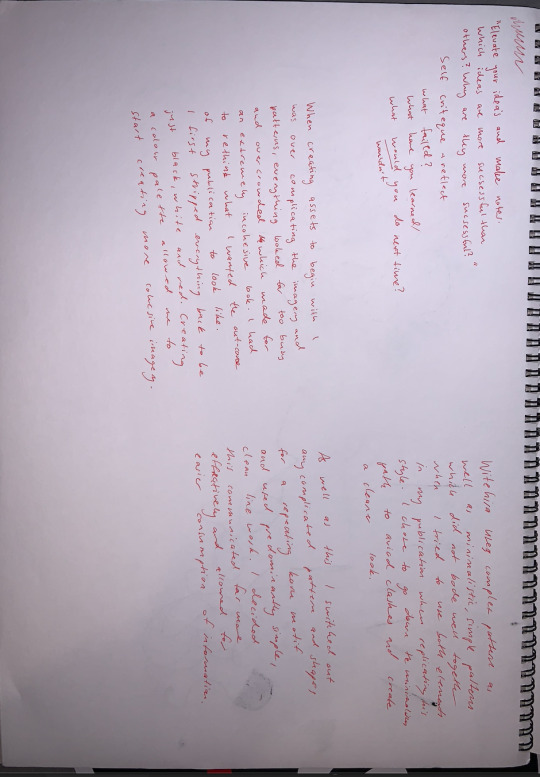 "Elevate your idea's and make notes.
Which ideas are more successful than
others? Why are they more successful?"
Self critique & reflect
what failed?
What have you learned/
what would you do next time?
wouldn't
When creating assets to begin with I
was over complicating the imagery and
patterns, everything looked far too busy
and overcrowded which made for
an extremely incohesive look. I had
to rethink what I wanted the outcome
of my publication to look like.
I first stripped everything back to be
just black, white and red. Creating
a colour palette allowed me to
start creating more cohesive imagery.
uses complex patterns as
well as minimalistic, simple patterns
which did not bode well together
when I tried to use both elements
in my publication when replicating his
style. I chose to go down the minimalism
path to aviod clashes and create
a cleaner look.
As well as this I switched out
any complicated pattern and shapes
for a repeating motif
and used predominantly simple,
clean line work. I decided
this communicated far more
effectively and allowed for
easier consumption of information.